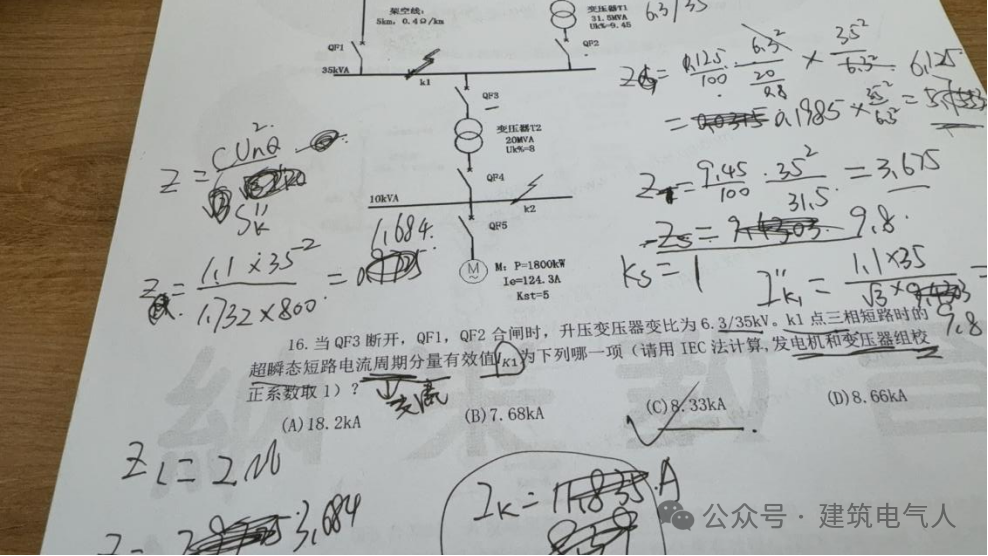 架空线:
5km, 0.4Ω/km
变压器T1
31.5MVA
Uk%=9.45
6.3/35
QF1
QF2
35kVA
k1
QF3
变压器T2
20MVA
Uk%=8
QF4
10kVA
k2
QF5
M
~
M: P=1800kW
Ie=124.3A
Kst=5
Z = CUnQ² / SK''
1.1×35² / 1.732×800 =
1.684
0.125/100 · 6.3²/(20/0.8) × 35²/6.3² = 6.125
= 0.1985 × 35²/6.3² =
ZT = 9.45/100 · 35²/31.5 = 3.675
Zs = 9.8
Ks = 1
I''K1 = 1.1×35 / √3× =
9.8
16. 当 QF3 断开，QF1，QF2 合闸时，升压变压器变比为 6.3/35kV。k1 点三相短路时的
超瞬态短路电流周期分量有效值 IK1 为下列哪一项（请用 IEC 法计算,发电机和变压器组校
正系数取 1）？
交流
(A)18.2kA
(B)7.68kA
(C)8.33kA
(D)8.66kA
ZL = 2
3.684
IK = A
公众号 · 建筑电气人